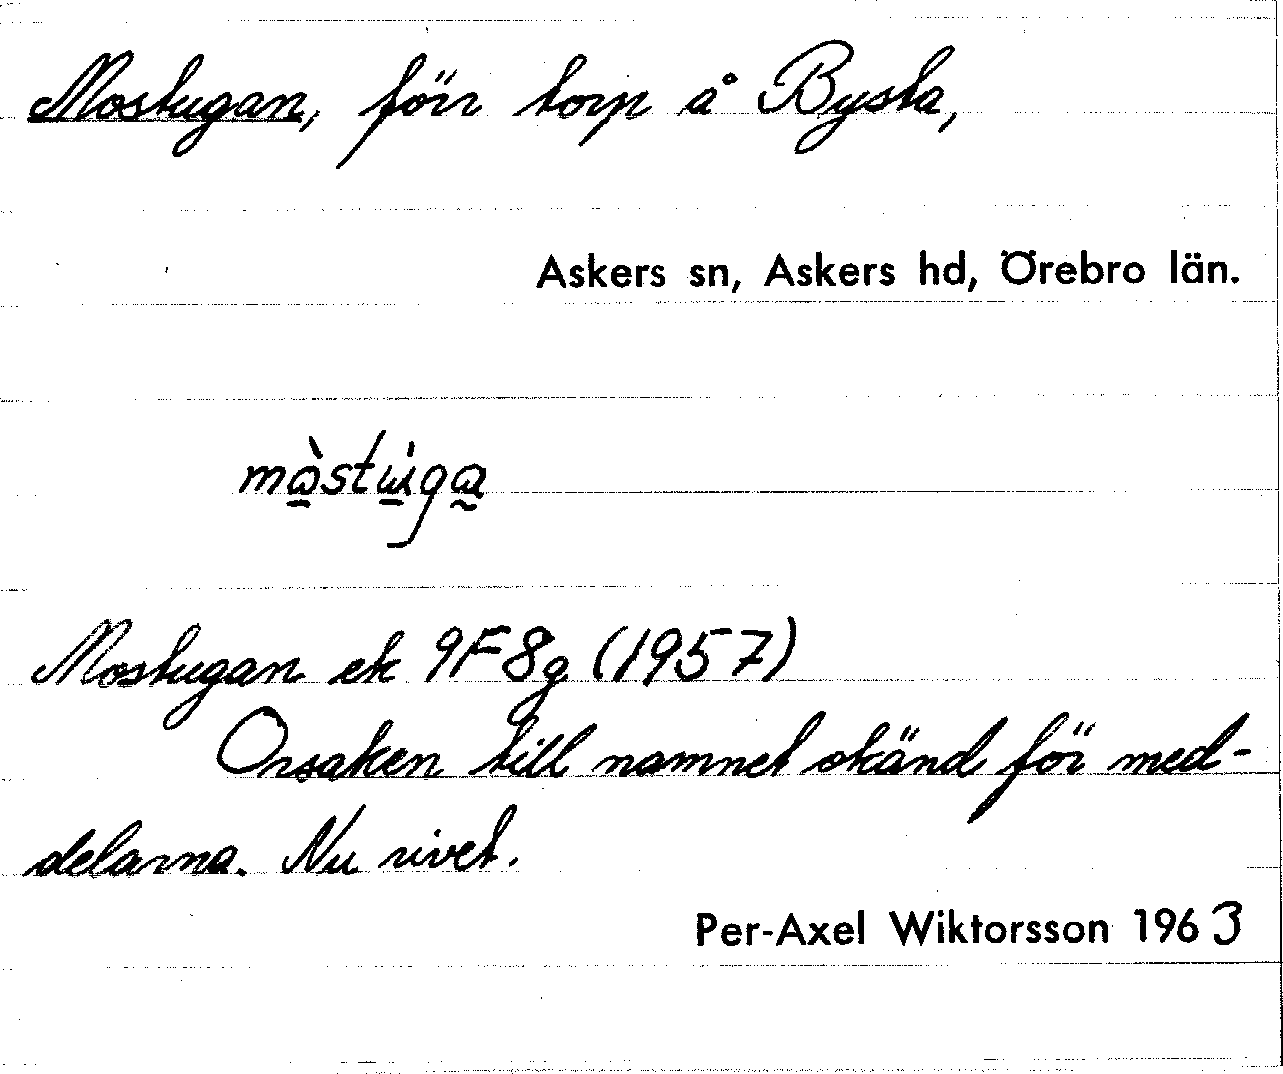 Mostugan, förr torp å Bysta,
Askers sn, Askers hd, Örebro län.
Mostugan ek 9F8g (1957)
Orsaken till namnet okänd för med-
delarna. Nu rivet.
Per-Axel Wiktorsson 1963